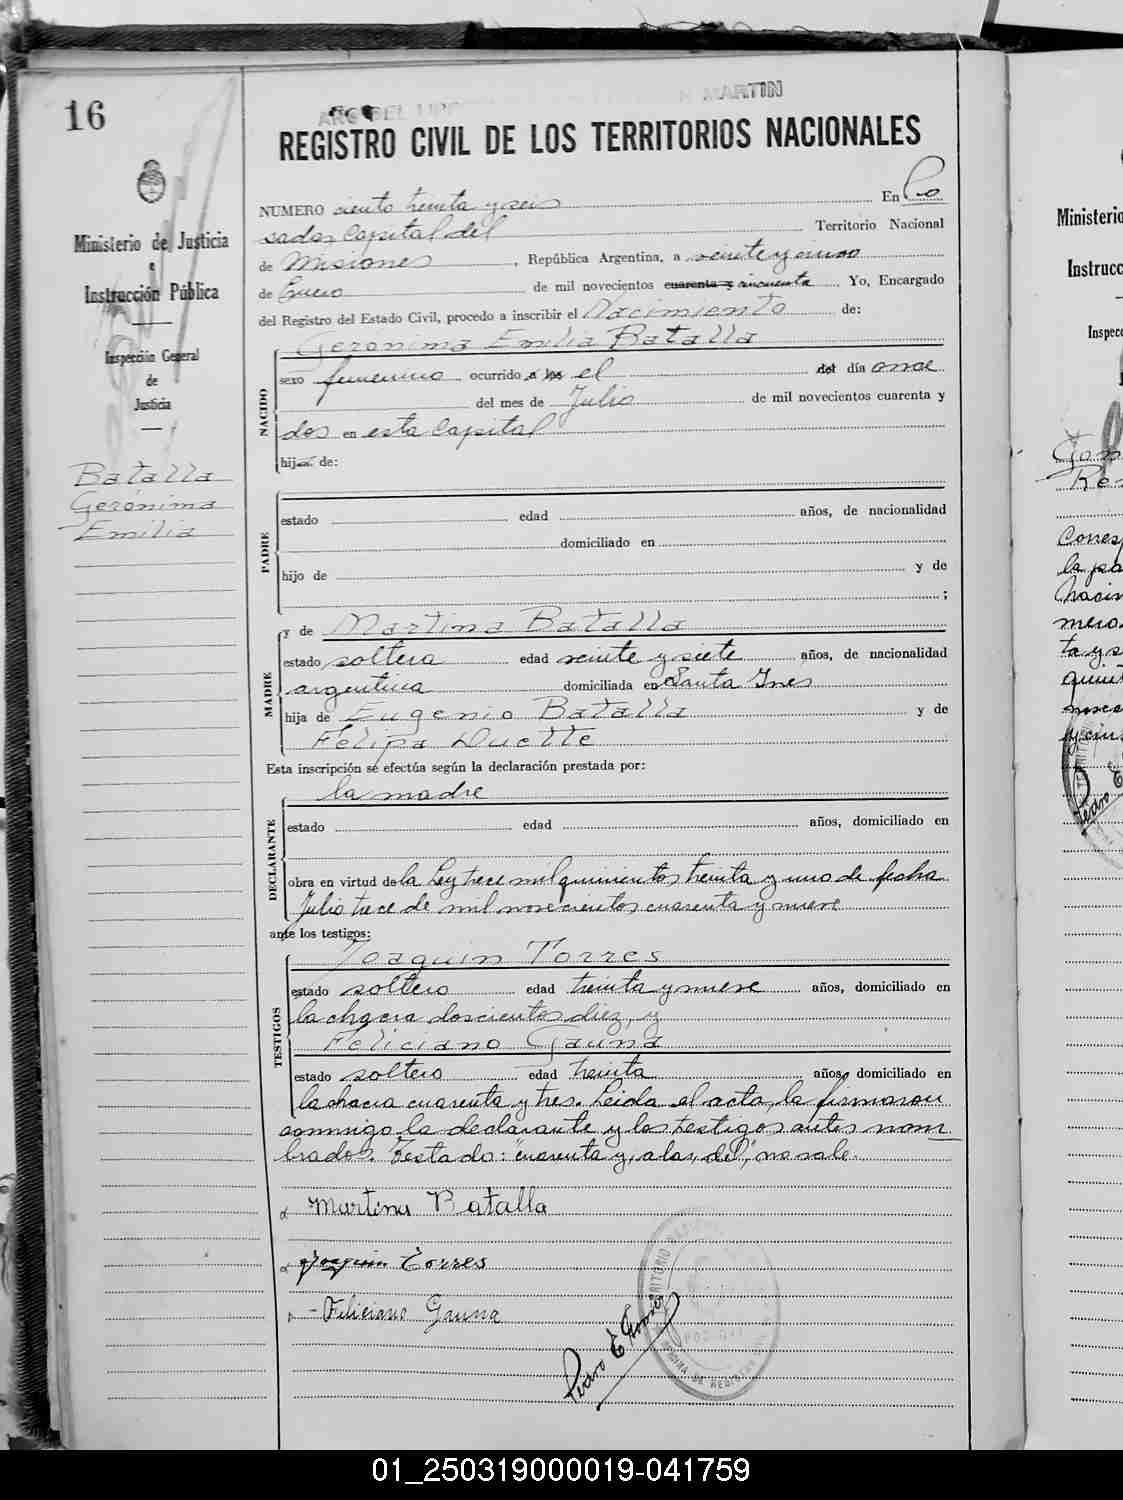 16
MARTIN
REGISTRO CIVIL DE LOS TERRITORIOS NACIONALES
Ministerio de Justicia
e
Instrucción Pública
Inspección General
de
Justicia
Batalla
Gerónima
Emilia
NUMERO ciento treinta y seis En Po
sadas Capital del Territorio Nacional
de Misiones, República Argentina, a veinte y cinco
de Enero de mil novecientos cuarenta y cincuenta. Yo, Encargado
del Registro del Estado Civil, procedo a inscribir el Nacimiento de:
NACIDO
Gerónima Emilia Batalla
sexo femenino ocurrido a las el del día once
del mes de Julio de mil novecientos cuarenta y
dos en esta Capital
hija de:
PADRE
estado edad años, de nacionalidad
domiciliado en
hijo de y de
;
MADRE
y de Martina Batalla
estado soltera edad veinte y siete años, de nacionalidad
argentina domiciliada en Santa Ines
hija de Eugenio Batalla y de
Felipa Duette
Esta inscripción se efectúa según la declaración prestada por:
DECLARANTE
la madre
estado edad años, domiciliado en
obra en virtud de la Ley trece mil quinientos treinta y uno de fecha
Julio trece de mil novecientos cuarenta y nueve
ante los testigos:
TESTIGOS
Joaquin Torres
estado soltero edad treinta y nueve años, domiciliado en
la chacra doscientos diez, y
Feliciano Gauna
estado soltero edad treinta años, domiciliado en
la chacra cuarenta y tres. Leida el acta, la firmaron
conmigo la declarante y los testigos antes nom
brados. Testado: "cuarenta y, a las, del", no vale.
Martina Batalla
Joaquin Torres
Feliciano Gauna
Pedro E
Ministerio
Instrucc
Inspecc
la pa
mero
ta y s
01_250319000019-041759